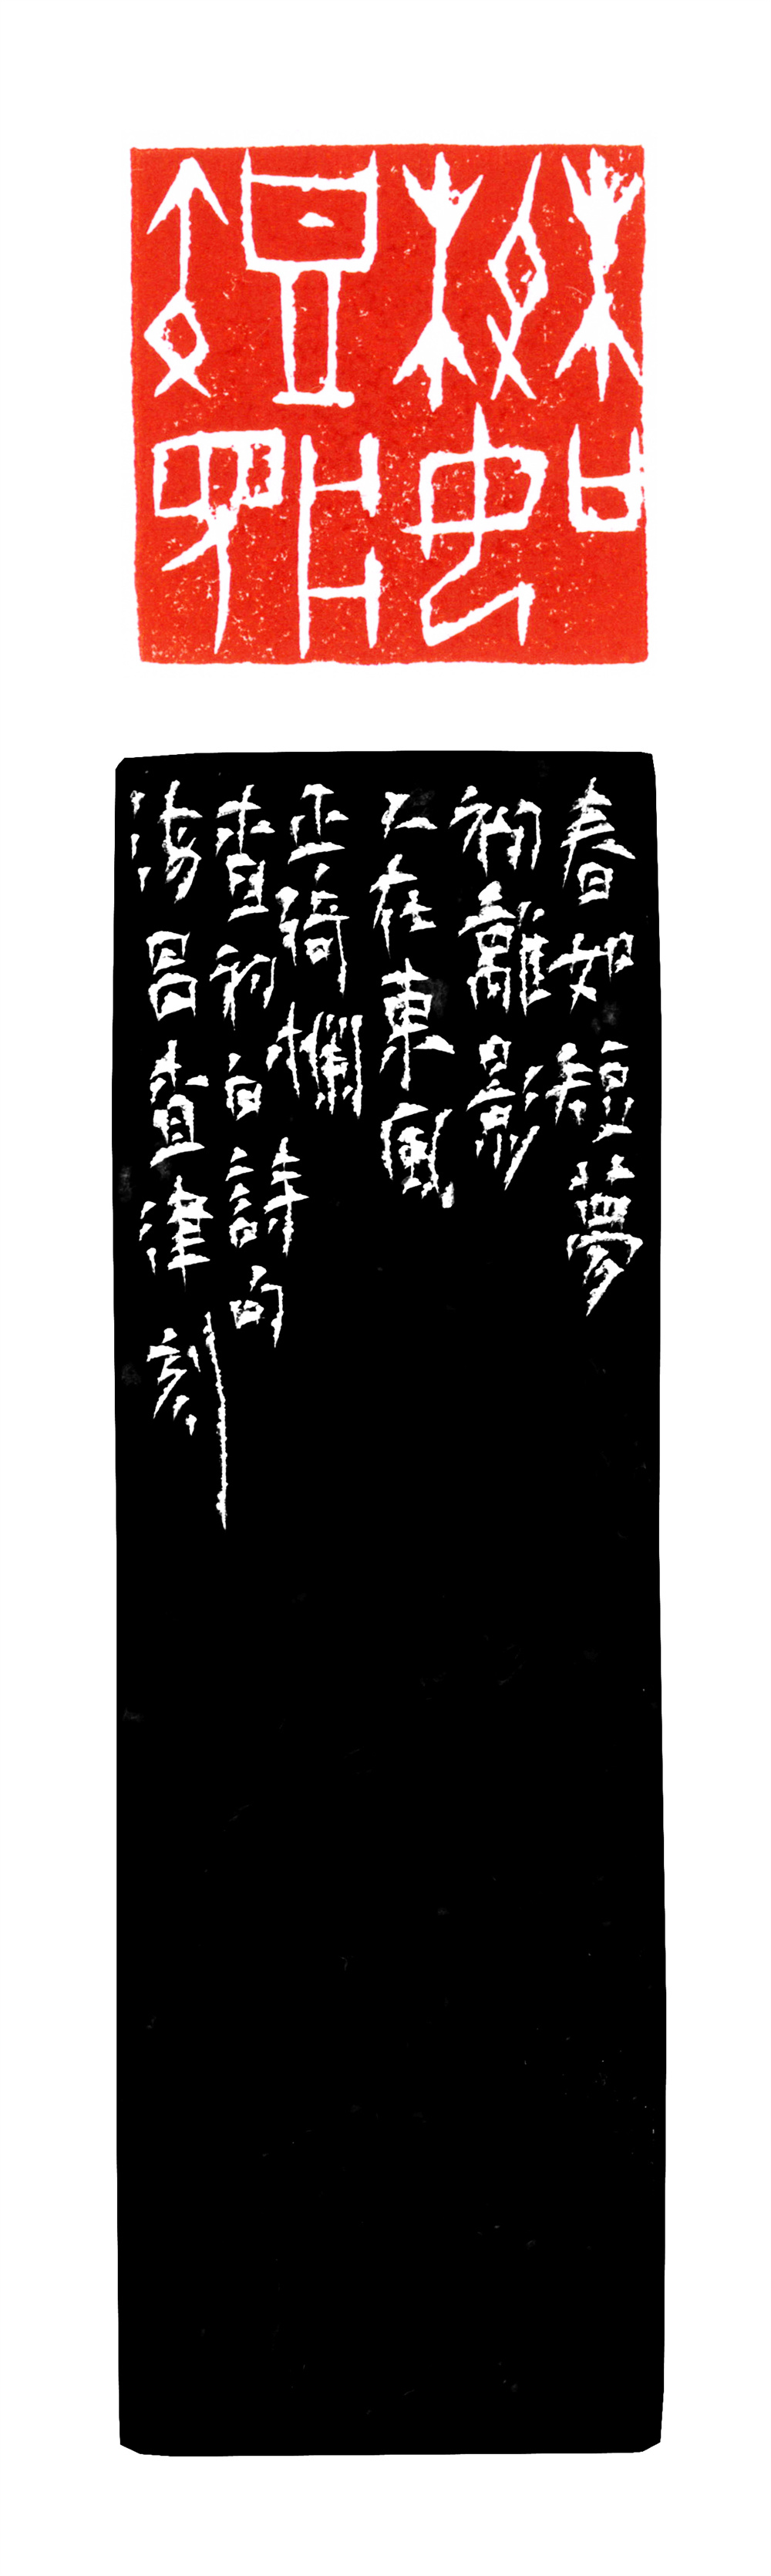 春如短夢
春如短夢
初離影
人在東風
正倚欄
查初白詩句
海昌查律刻